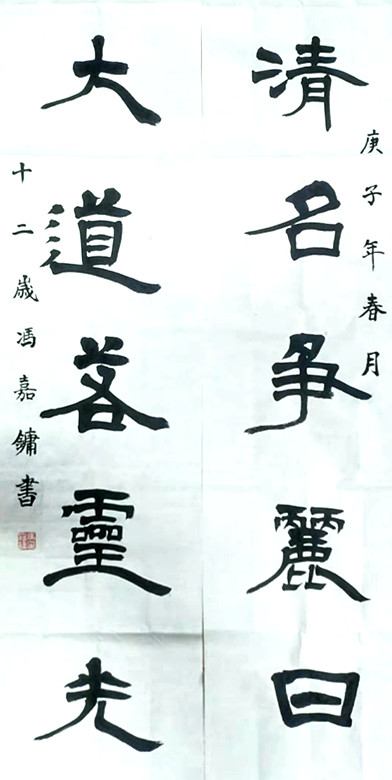 庚子年春月
清名争麗日
大道茖靈光
十二歲馮嘉鏞書